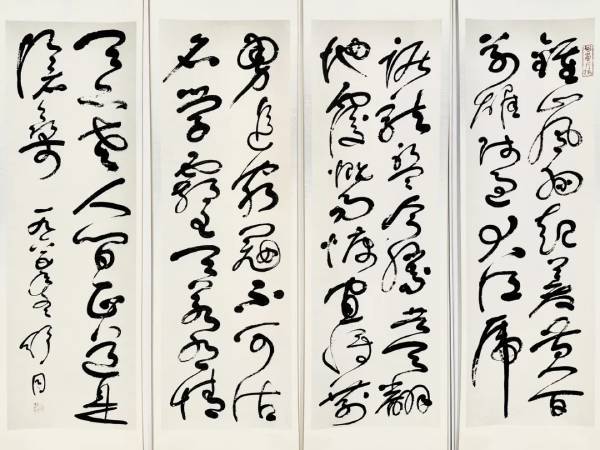 鍾山風雨起蒼黄百
萬雄师过大江虎
踞龍盤今勝昔天翻
地覆慨而慷宜将剩
勇追窮寇不可沽
名学霸王天若有情
天亦老人间正道是
滄桑 一九八 年冬 舒同